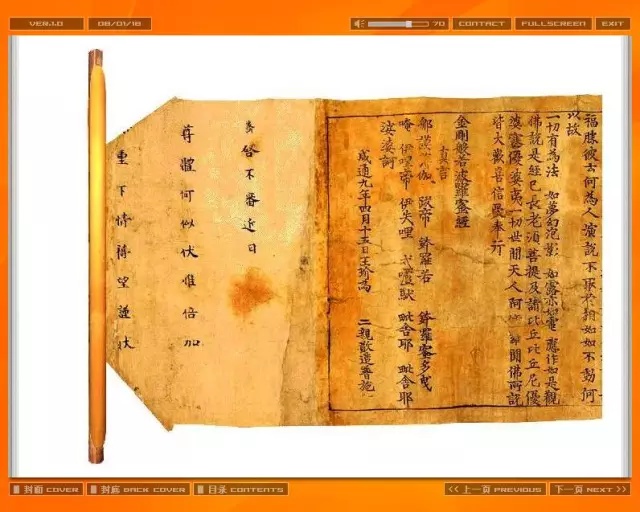 VER.1.0
08/01/18
70
CONTACT
FULLSCREEN
EXIT
福勝彼云何為人演說不取於相如如不動何
以故
一切有為法 如夢幻泡影 如露亦如電 應作如是觀
佛說是經已長老須菩提及諸比丘比丘尼優
婆塞優婆夷一切世間天人阿 聞佛所說
皆大歡喜信受奉行
金剛般若波羅蜜經
真言
那謨 伽 帝 鉢羅若 鉢羅蜜多曳
唵 伊哩帝 伊失哩 戍嚧馱 毗舍耶 毗舍耶
婆婆訶
咸通九年四月十五日王玠為 二親敬造普施
啓不審近日
尊體何似伏惟倍加
重下情 望謹狀
封面 COVER
封底 BACK COVER
目录 CONTENTS
<< 上一页 PREVIOUS
下一页 NEXT >>